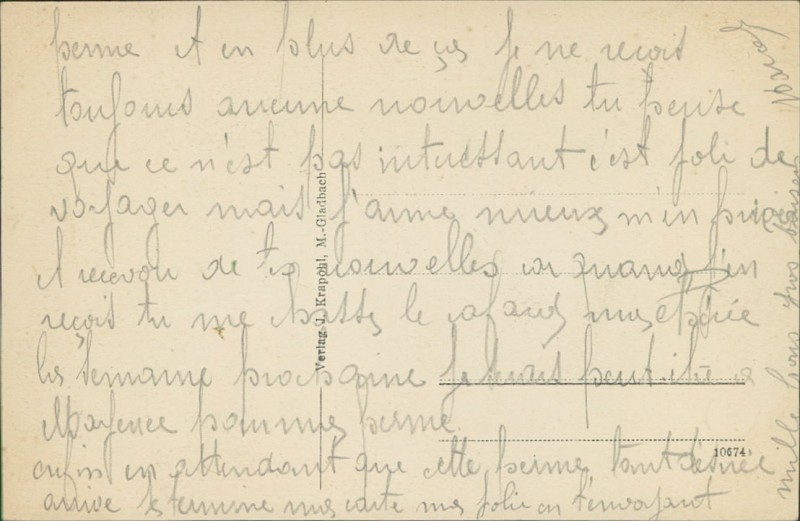 perme et en plus de ça je ne reçois
toujours aucune nouvelles tu pense
que ce n'est pas intéressant c'est joli de
voyager mais j'aime mieux m'en priver
et recevoir de tes nouvelles car quand j'en
reçoit tu me chasse le cafard ma
la semaine prochaine je serais peut être a
Mayence pour ma perme
enfin en attendant que cette perme tant désirée
arrive je termine ma carte ma jolie en t'envoyant
mille bons gros baisers
Verlag J. Krapohl, M.-Gladbach
10674